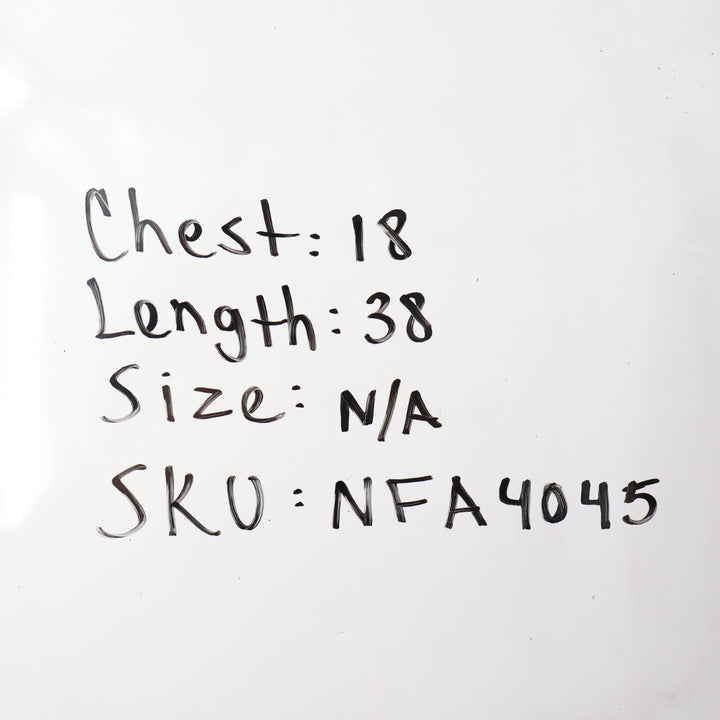 Chest: 18
Length: 38
Size: N/A
SKU: NFA4045